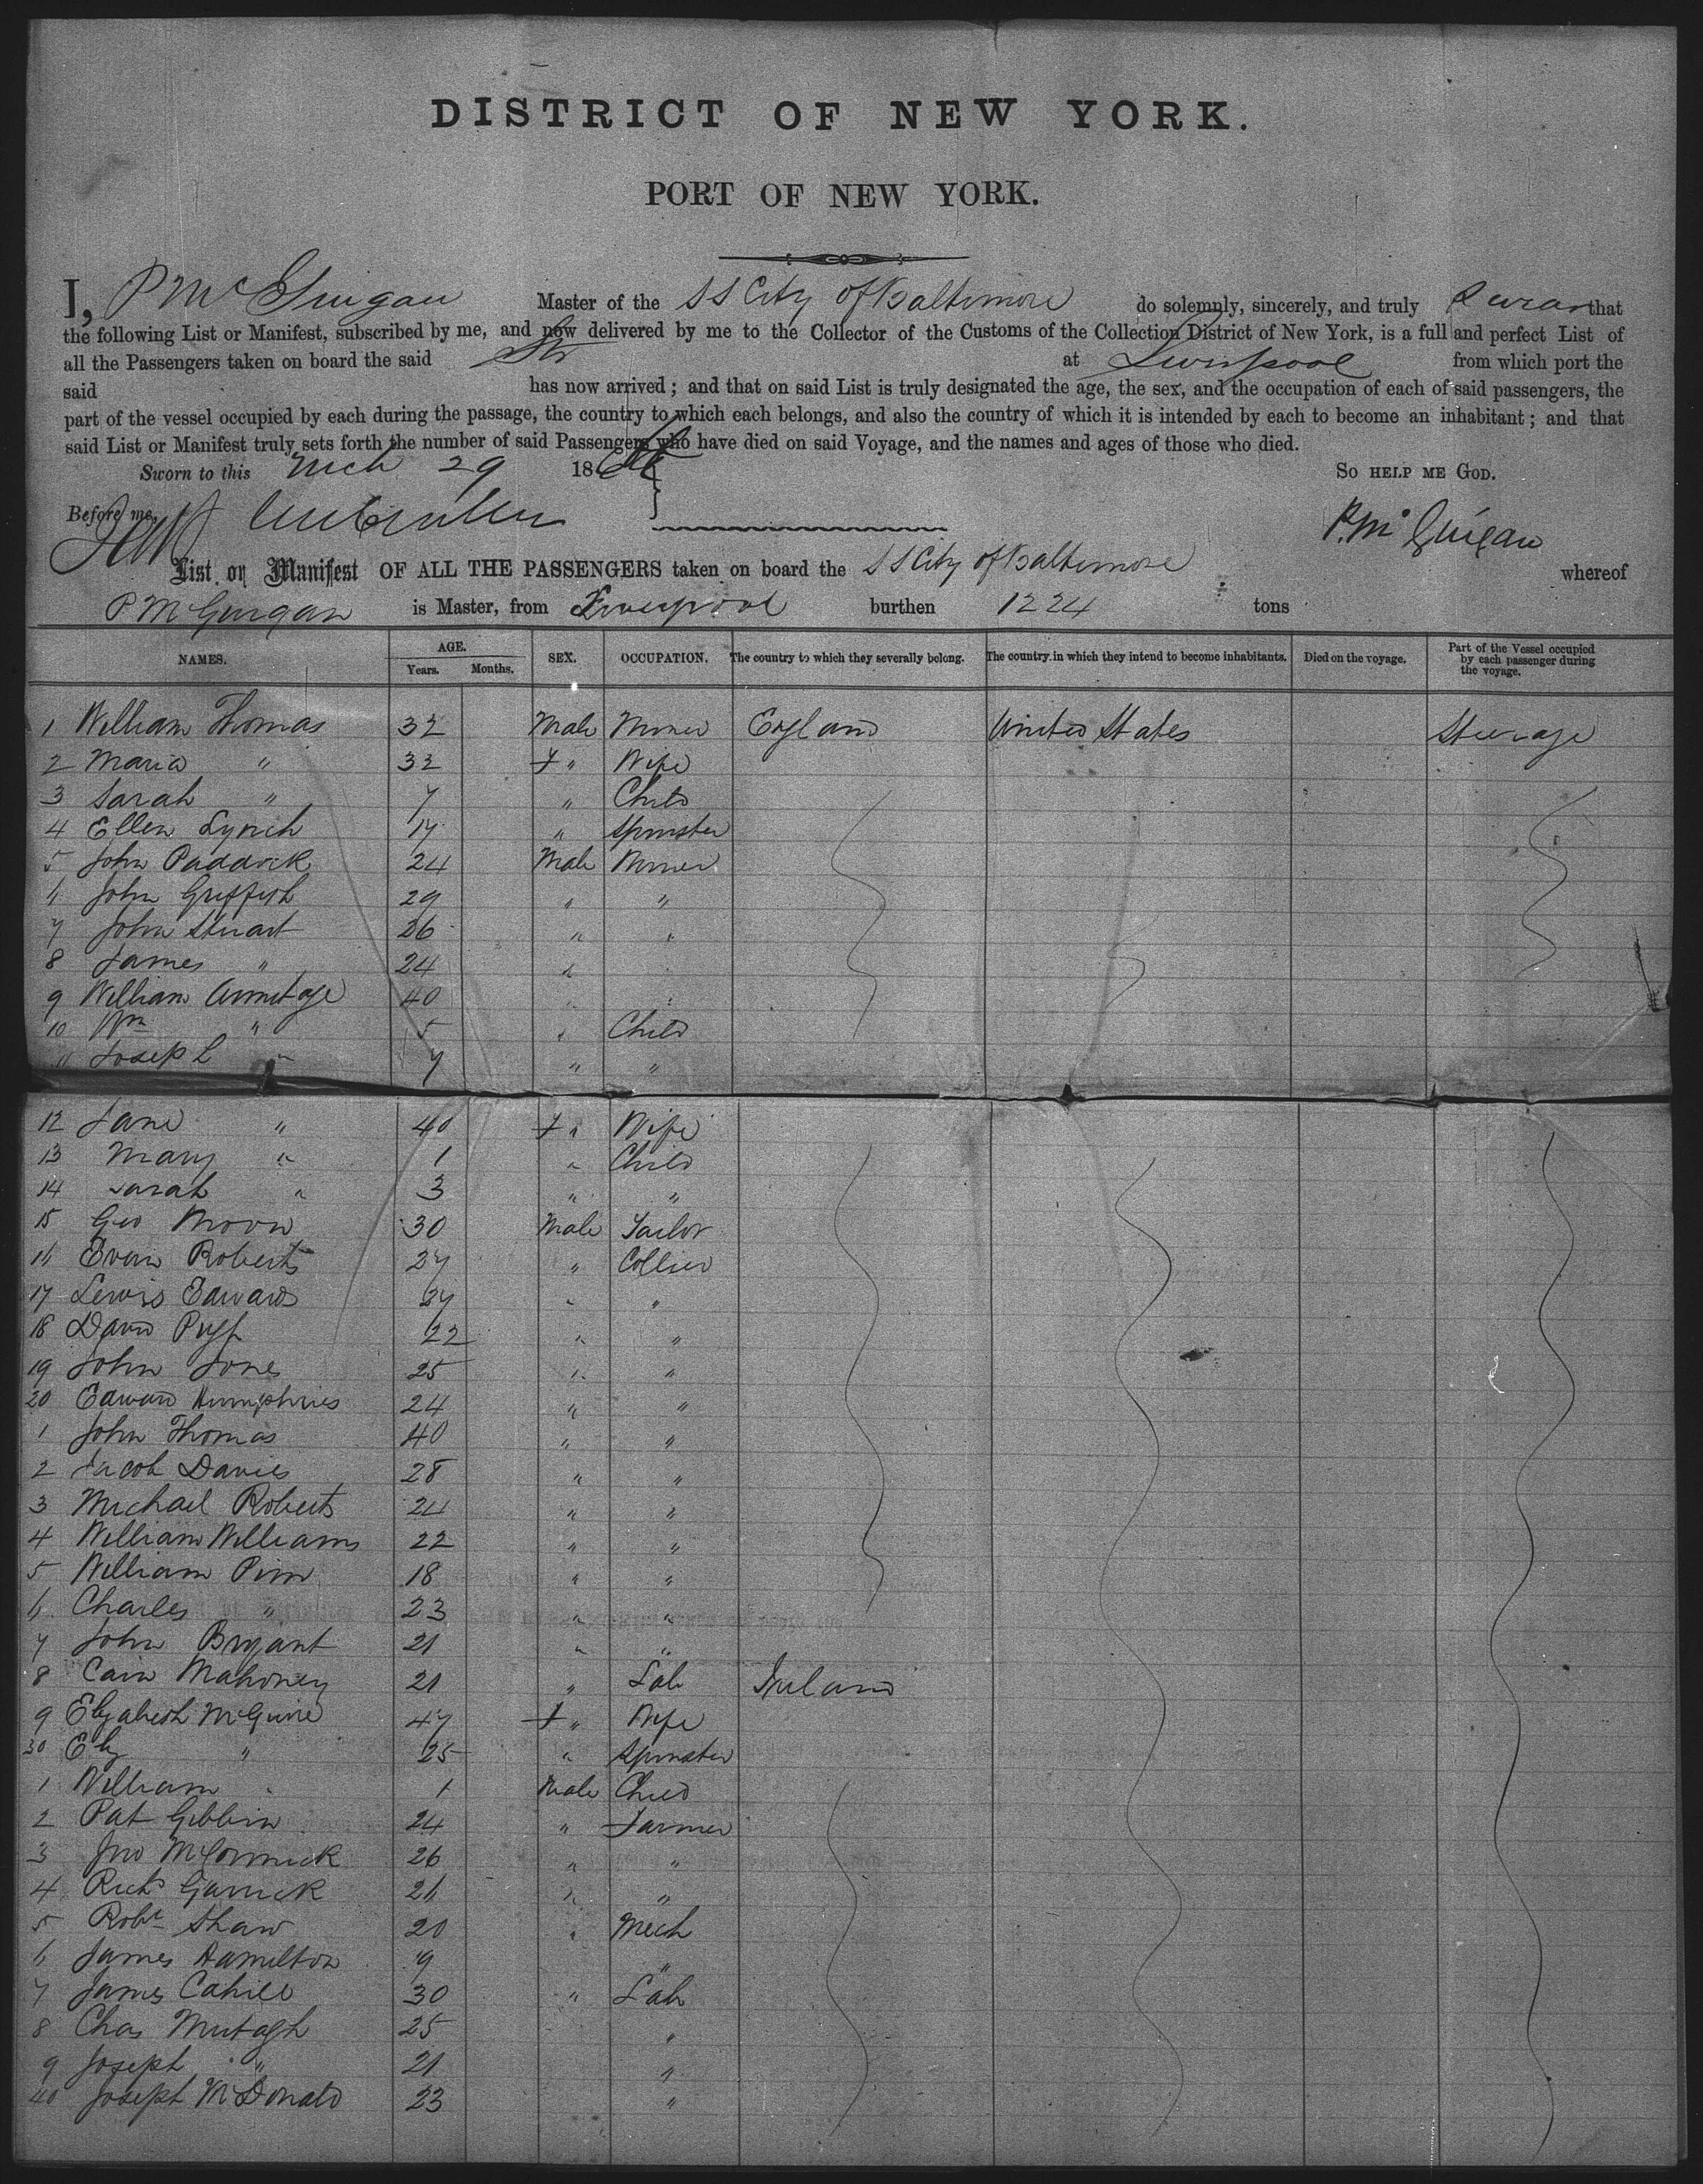 DISTRICT OF NEW YORK.
PORT OF NEW YORK.
I, P McGuigan Master of the SS City of Baltimore do solemnly, sincerely, and truly swear that
the following List or Manifest, subscribed by me, and now delivered by me to the Collector of the Customs of the Collection District of New York, is a full and perfect List of
all the Passengers taken on board the said Str at Liverpool from which port the
said has now arrived; and that on said List is truly designated the age, the sex, and the occupation of each of said passengers, the
part of the vessel occupied by each during the passage, the country to which each belongs, and also the country of which it is intended by each to become an inhabitant; and that
said List or Manifest truly sets forth the number of said Passengers who have died on said Voyage, and the names and ages of those who died.
Sworn to this Mch 29 186 SO HELP ME GOD.
Before me, P. McGuigan
List or Manifest OF ALL THE PASSENGERS taken on board the SS City of Baltimore whereof
P McGuigan is Master, from Liverpool burthen 1224 tons
NAMES. AGE. Years. Months. SEX. OCCUPATION. The country to which they severally belong. The country in which they intend to become inhabitants. Died on the voyage. Part of the Vessel occupied by each passenger during the voyage.
1 William Thomas 32 Male Miner England United States Steerage
2 Maria " 32 F " Wife
3 Sarah " 7 " Child
4 Ellen Lynch 17 " Spinster
5 John Paddock 24 Male Miner
6 John Griffith 29 " "
7 John Stuart 26 " "
8 James " 24 "
9 William Armitage 40 " "
10 Wm " 5 " Child
11 Joseph " 7 " "
12 Jane " 40 F " Wife
13 Mary " 1 " Child
14 Sarah " 3 " "
15 Geo Moon 30 Male Tailor
16 Evan Roberts 27 " Collier
17 Lewis Edwards 27 " "
18 David Pugh 22 " "
19 John Jones 25 " "
20 Edward Humphries 24 " "
1 John Thomas 40 " "
2 Jacob Davies 28 " "
3 Michael Roberts 24 " "
4 William Williams 22 " "
5 William Pim 18 " "
6 Charles " 23 " "
7 John Bryant 21 " "
8 Cain Mahoney 21 " Lab Ireland
9 Elizabeth McGuire 47 F " Wife
30 Eliz " 25 " Spinster
1 William " 1 Male Child
2 Pat Gibbin 24 " Farmer
3 Jno McCormick 26 " "
4 Richd Garrick 26 " "
5 Robt Shaw 20 " Mech
6 James Hamilton 19 "
7 James Cahill 30 " Lab
8 Chas Mutagh 25 "
9 Joseph " 21 "
40 Joseph McDonald 23 "